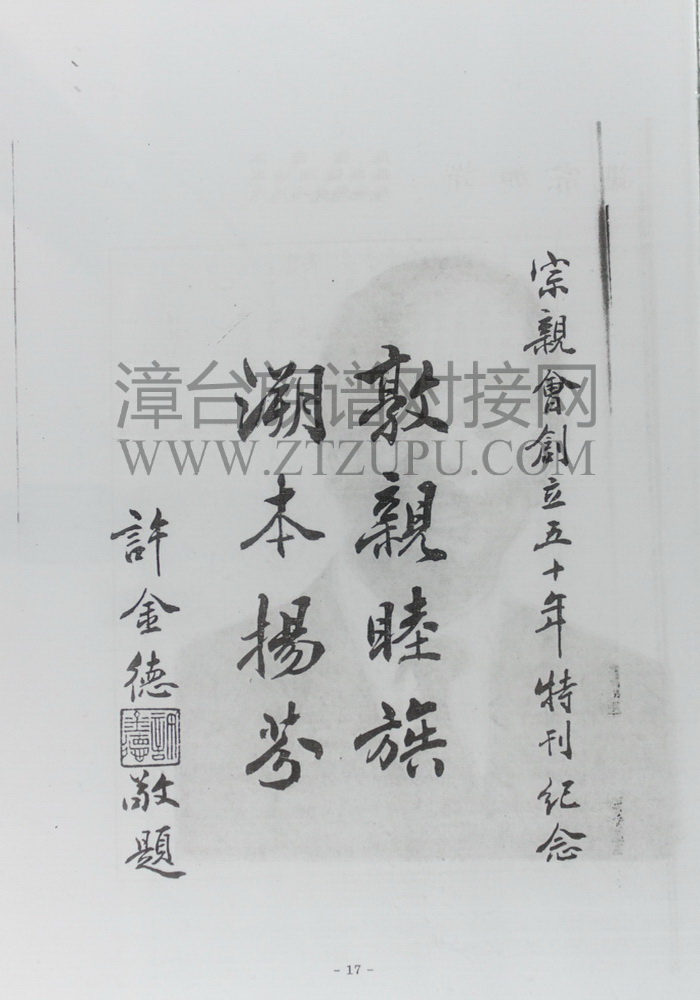 宗親會創立五十年特刊紀念
敦親睦族
溯本揚芬
許金德
敬題
漳台族谱对接网
WWW.ZTZUPU.COM
- 17 -